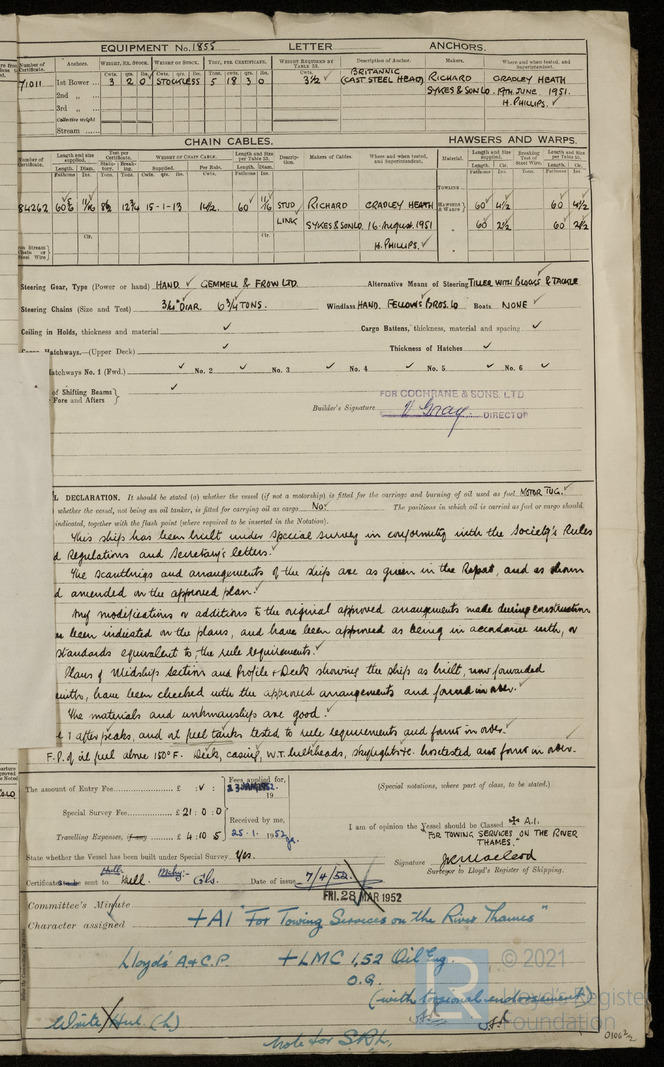 EQUIPMENT No. 1855 LETTER ANCHORS.
Number of Certificate. Anchors. WEIGHT, EX. STOCK. WEIGHT OF STOCK. TEST, PER CERTIFICATE. WEIGHT REQUIRED BY TABLE 53. Description of Anchor. Makers. Where and when tested, and Superintendent.
Cwts. qrs. lbs. Cwts. qrs. lbs. Tons. Cwts. qrs. lbs. Cwts.
71011 1st Bower ... 3 2 0 STOCKLESS 5 18 3 0 3½ BRITANNIC (CAST STEEL HEAD) RICHARD CRADLEY HEATH
2nd „ SYKES & SON LD. 19TH JUNE 1951.
3rd „ H. PHILLIPS.
Collective weight
Stream ......
CHAIN CABLES. HAWSERS AND WARPS.
Number of Certificate. Length and size supplied. Test per Certificate. WEIGHT OF CHAIN CABLE. Length and Size per Table 53. Description. Makers of Cables. Where and when tested, and Superintendent. Material. Length and Size supplied. Breaking Test of Steel Wire. Length and Size per Table 53.
84262 60 11/16 15-1-13 14½ 60 11/16 STUD RICHARD CRADLEY HEATH HAWSERS & WARPS 60 4½ 60 4½
LINK SYKES & SON LD. 16 August, 1951 60 2½ 60 2½
H. PHILLIPS.
Steering Gear, Type (Power or hand) HAND. GEMMELL & FROW LTD. Alternative Means of Steering TILLER WITH BLOCKS & TACKLE
Steering Chains (Size and Test) DIAR. 6¾ TONS. Windlass HAND. FELLOWS BROS. LD Boats NONE
Ceiling in Holds, thickness and material Cargo Battens, thickness, material and spacing
Hatchways.—(Upper Deck) Thickness of Hatches
Hatchways No. 1 (Fwd.) No. 2 No. 3 No. 4 No. 5 No. 6
of Shifting Beams
Fore and Afters
FOR COCHRANE & SONS. LTD
Builder's Signature Gray DIRECTOR
DECLARATION. It should be stated (a) whether the vessel (if not a motorship) is fitted for the carriage and burning of oil used as fuel MOTOR TUG.
whether the vessel, not being an oil tanker, is fitted for carrying oil as cargo No. The positions in which oil is carried as fuel or cargo should
indicated, together with the flash point (where required to be inserted in the Notation).
This ship has been built under special survey in conformity with the Society's Rules
Regulations and Secretary's letters.
The scantlings and arrangements of the ship are as given in the Report, and as shown
amended on the approved plan.
Any modifications or additions to the original approved arrangements made during construction
been indicated on the plans, and have been approved as being in accordance with, or
standards equivalent to the rule requirements.
Plans of Midship Section and Profile & Deck showing the ship as built, now forwarded
have been checked with the approved arrangements and found in order.
The materials and workmanship are good.
after peaks, and oil fuel tanks tested to rule requirements and found in order.
F.P. of oil fuel above 150°F. Deck, casing, W.T. bulkheads, skylights &c. hosetested and found in order.
The amount of Entry Fee £ Fees applied for,
Special Survey Fee £ 21 : 0 : 0 Received by me,
Travelling Expenses, if any £ 4 : 10 5 25. 1. 1952
(Special notations, where part of class, to be stated.)
I am of opinion the Vessel should be Classed ✠ A.1.
"FOR TOWING SERVICES ON THE RIVER THAMES."
State whether the Vessel has been built under Special Survey Yes.
Signature
Surveyor to Lloyd's Register of Shipping.
sent to Hull Date of issue 7/4/52
FRI. 28 MAR 1952
Committee's Minute
Character assigned +A1 "For Towing Services on the River Thames"
Lloyd's A & C.P. +LMC 1,52 Oil Eng.
O.G.
(with torsional endorsement)
Note for S.R.L.
LR © 2021
Lloyd's Register
Foundation